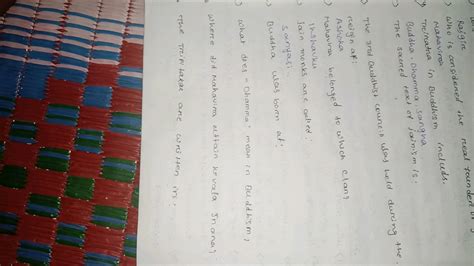 Kaigne
who is considered the real founder of
Mahavira
Triratna in Buddhism includs.
Buddha, Dhamma, sangha
The sacred text of Jainism is.
The 3rd Buddhist council was held during the
reign of.
Ashoka
Mahavira belonged to which clan?
Ikshvaku
Jain monks are called.
Sanyasi
Buddha was born at.
What does "Dhamma" mean in Buddhism,
where did Mahavira attain kevala Jnana?
The Tripitakas are written in.